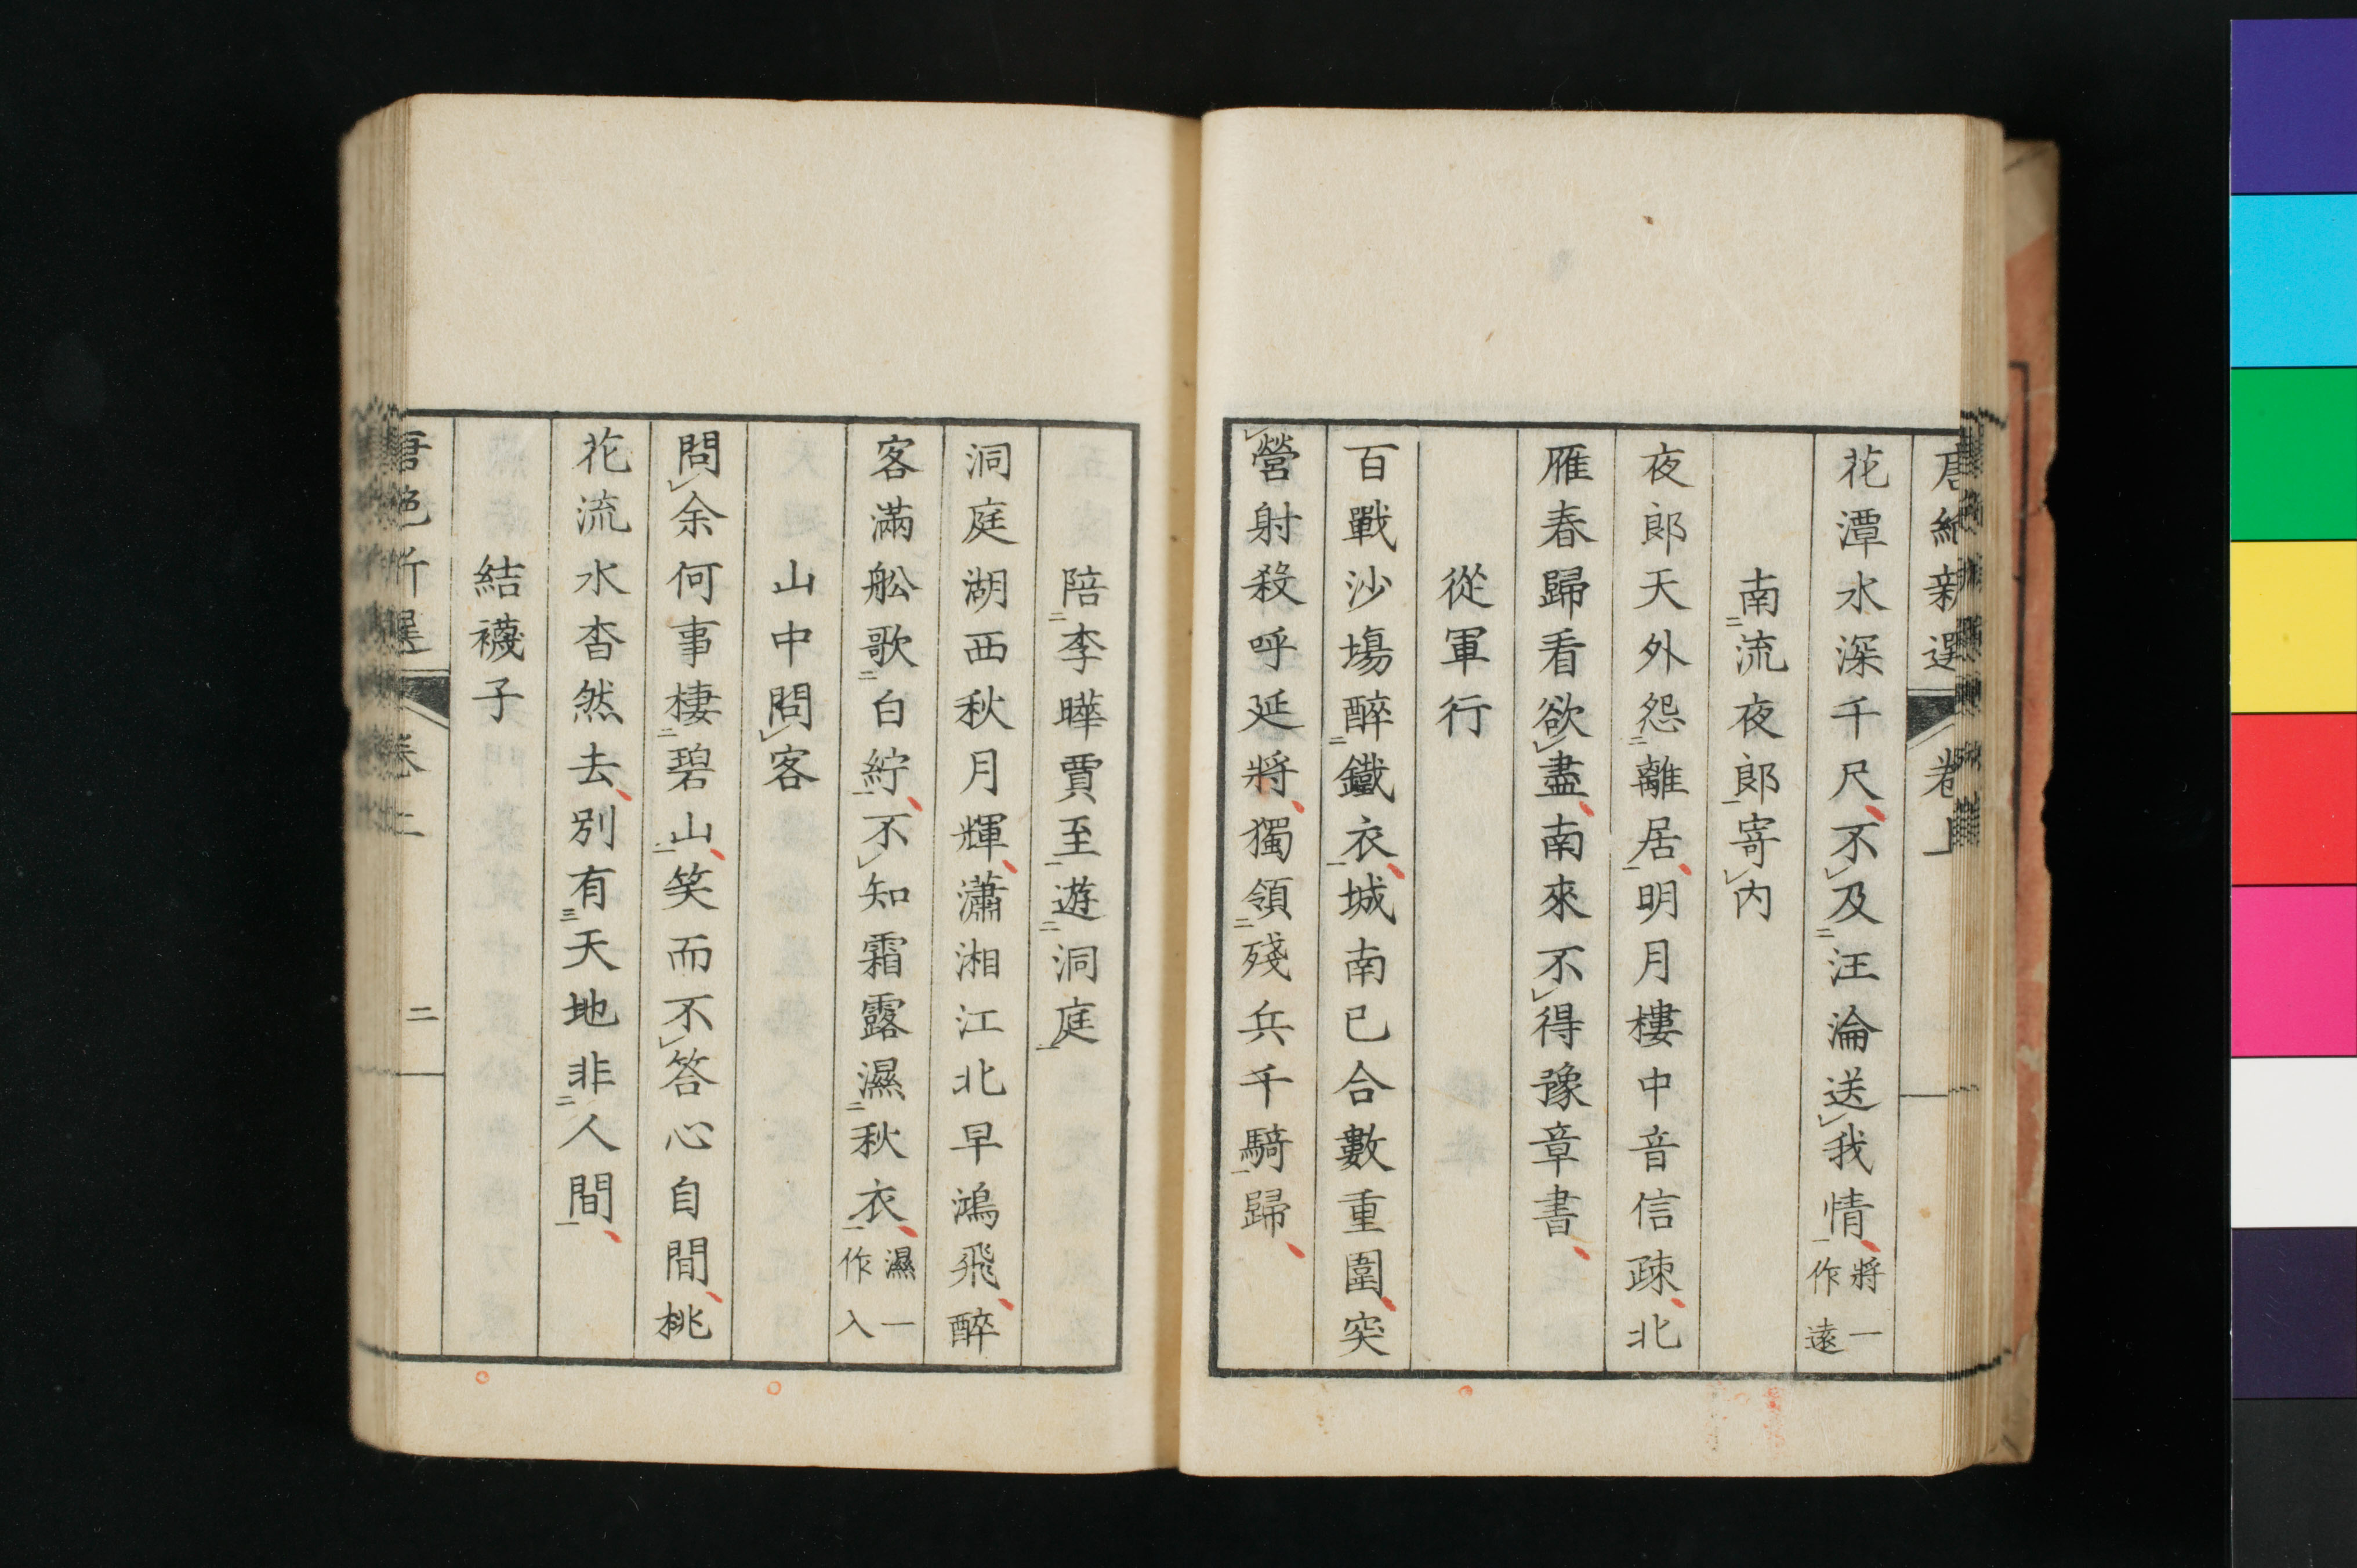 唐絕新選 卷上
花潭水深千尺不及汪淪送我情將一作遠
南流夜郎寄內
夜郎天外怨離居明月樓中音信疎北
雁春歸看欲盡南來不得豫章書
從軍行
百戰沙塲醉鐵衣城南已合數重圍突
營射殺呼延將獨領殘兵千騎歸
陪李曄賈至遊洞庭
洞庭湖西秋月輝瀟湘江北早鴻飛醉
客滿舩歌白紵不知霜露濕秋衣濕一作入
山中問客
問余何事棲碧山笑而不答心自閒桃
花流水杳然去別有天地非人間
結襪子
唐絕新選 卷上 二